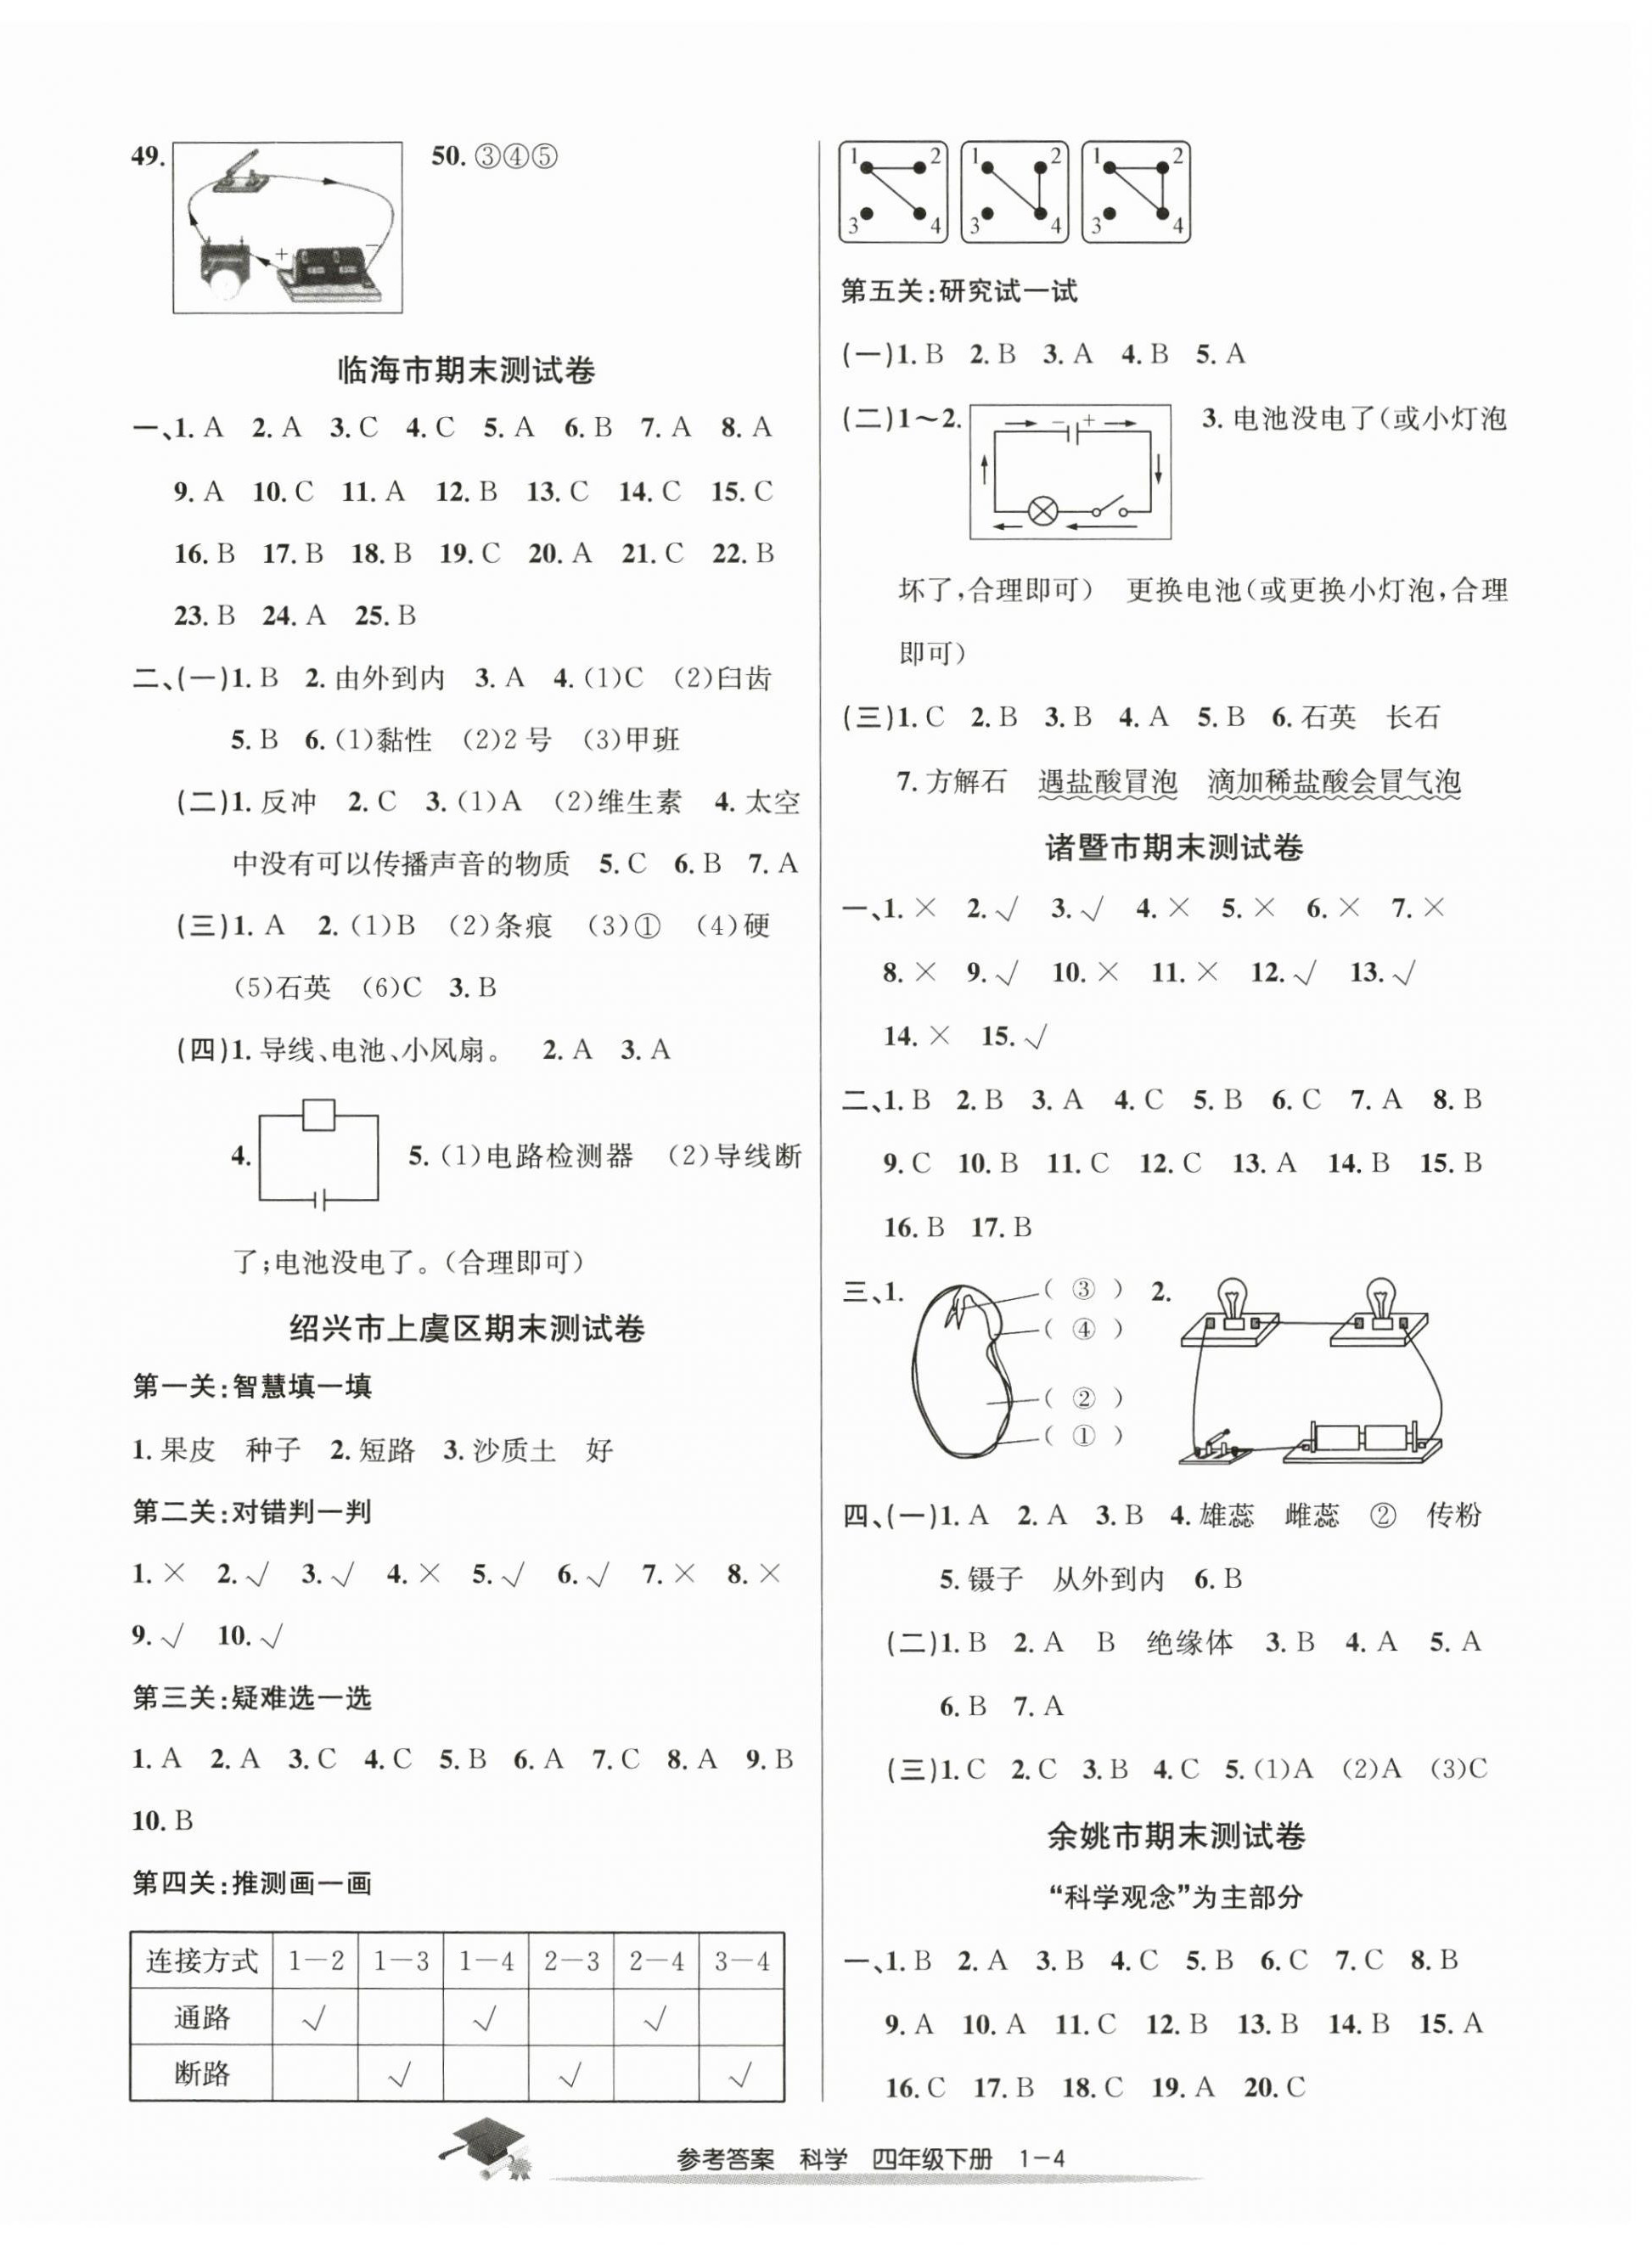 49.
+
－
50. ③④⑤
临海市期末测试卷
一、1. A 2. A 3. C 4. C 5. A 6. B 7. A 8. A
9. A 10. C 11. A 12. B 13. C 14. C 15. C
16. B 17. B 18. B 19. C 20. A 21. C 22. B
23. B 24. A 25. B
二、(一)1. B 2. 由外到内 3. A 4. (1)C (2)臼齿
5. B 6. (1)黏性 (2)2 号 (3)甲班
(二)1. 反冲 2. C 3. (1)A (2)维生素 4. 太空
中没有可以传播声音的物质 5. C 6. B 7. A
(三)1. A 2. (1)B (2)条痕 (3)① (4)硬
(5)石英 (6)C 3. B
(四)1. 导线、电池、小风扇。 2. A 3. A
4.
5. (1)电路检测器 (2)导线断
了;电池没电了。(合理即可)
绍兴市上虞区期末测试卷
第一关:智慧填一填
1. 果皮 种子 2. 短路 3. 沙质土 好
第二关:对错判一判
1. × 2. √ 3. √ 4. × 5. √ 6. √ 7. × 8. ×
9. √ 10. √
第三关:疑难选一选
1. A 2. A 3. C 4. C 5. B 6. A 7. C 8. A 9. B
10. B
第四关:推测画一画
连接方式 1－2 1－3 1－4 2－3 2－4 3－4
通路 √ √ √
断路 √ √ √
1 2 1 2 1 2
3 4 3 4 3 4
第五关:研究试一试
(一)1. B 2. B 3. A 4. B 5. A
(二)1～2.
－ +
3. 电池没电了(或小灯泡
坏了,合理即可) 更换电池(或更换小灯泡,合理
即可)
(三)1. C 2. B 3. B 4. A 5. B 6. 石英 长石
7. 方解石 遇盐酸冒泡 滴加稀盐酸会冒气泡
诸暨市期末测试卷
一、1. × 2. √ 3. √ 4. × 5. × 6. × 7. ×
8. × 9. √ 10. × 11. × 12. √ 13. √
14. × 15. √
二、1. B 2. B 3. A 4. C 5. B 6. C 7. A 8. B
9. C 10. B 11. C 12. C 13. A 14. B 15. B
16. B 17. B
三、1.
( ③ )
( ④ )
( ② )
( ① )
2.
四、(一)1. A 2. A 3. B 4. 雄蕊 雌蕊 ② 传粉
5. 镊子 从外到内 6. B
(二)1. B 2. A B 绝缘体 3. B 4. A 5. A
6. B 7. A
(三)1. C 2. C 3. B 4. C 5. (1)A (2)A (3)C
余姚市期末测试卷
“科学观念”为主部分
一、1. B 2. A 3. B 4. C 5. B 6. C 7. C 8. B
9. A 10. A 11. C 12. B 13. B 14. B 15. A
16. C 17. B 18. C 19. A 20. C
参考答案 科学 四年级下册 1－4